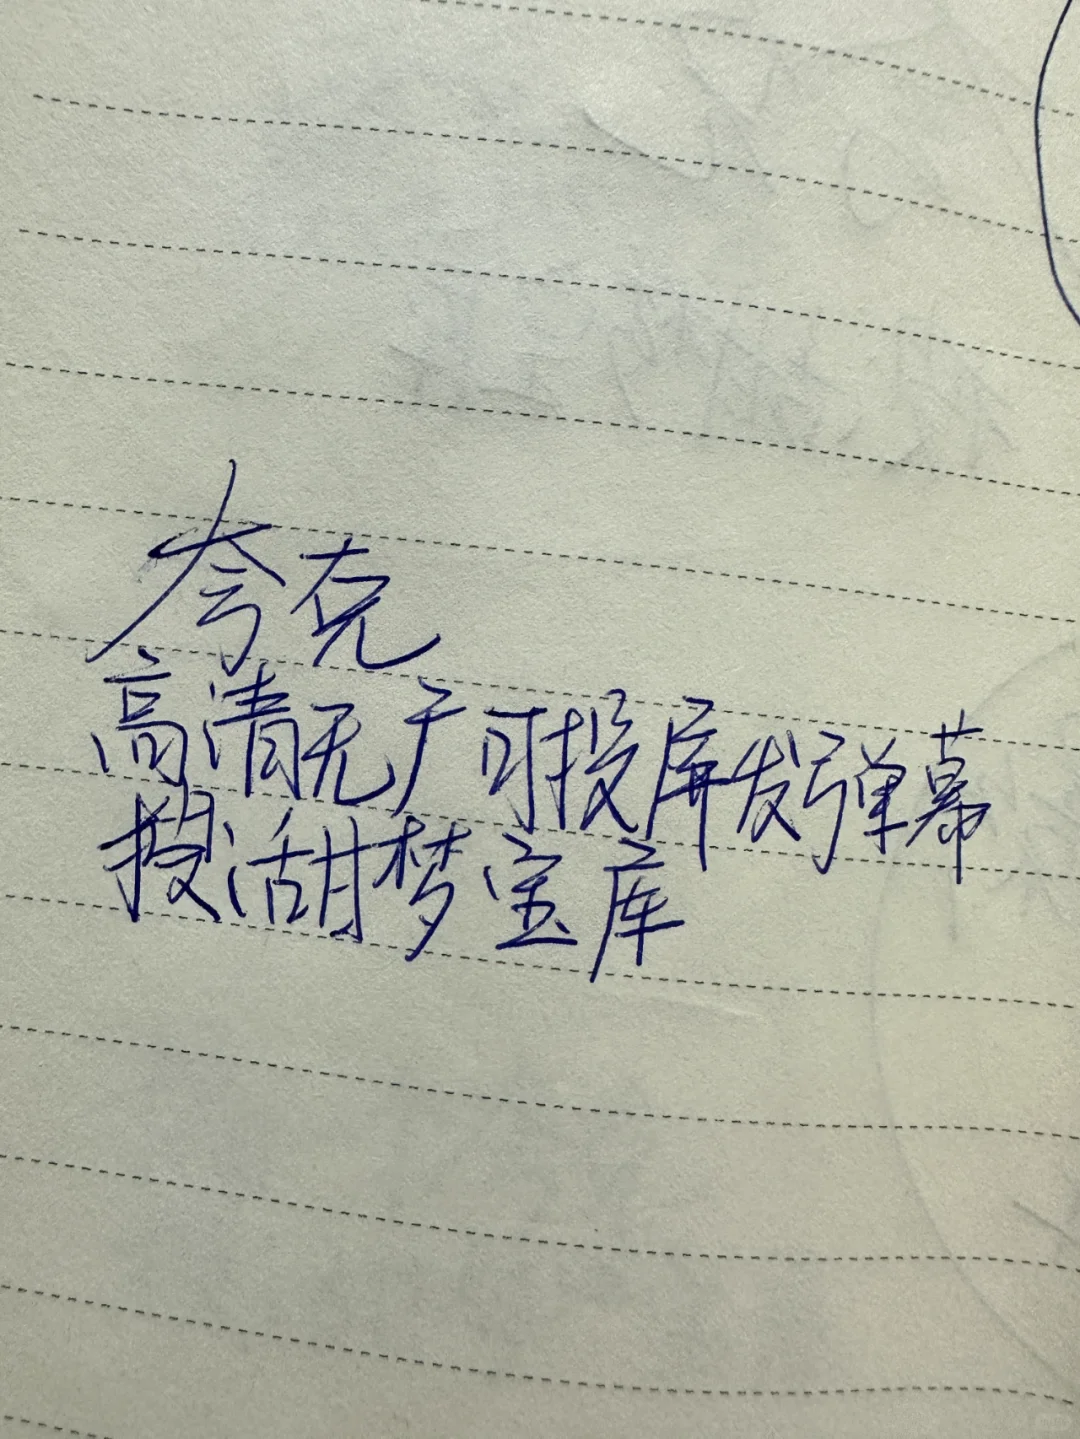 夸克
高清无广可投屏发弹幕
搜活甜梦宝库